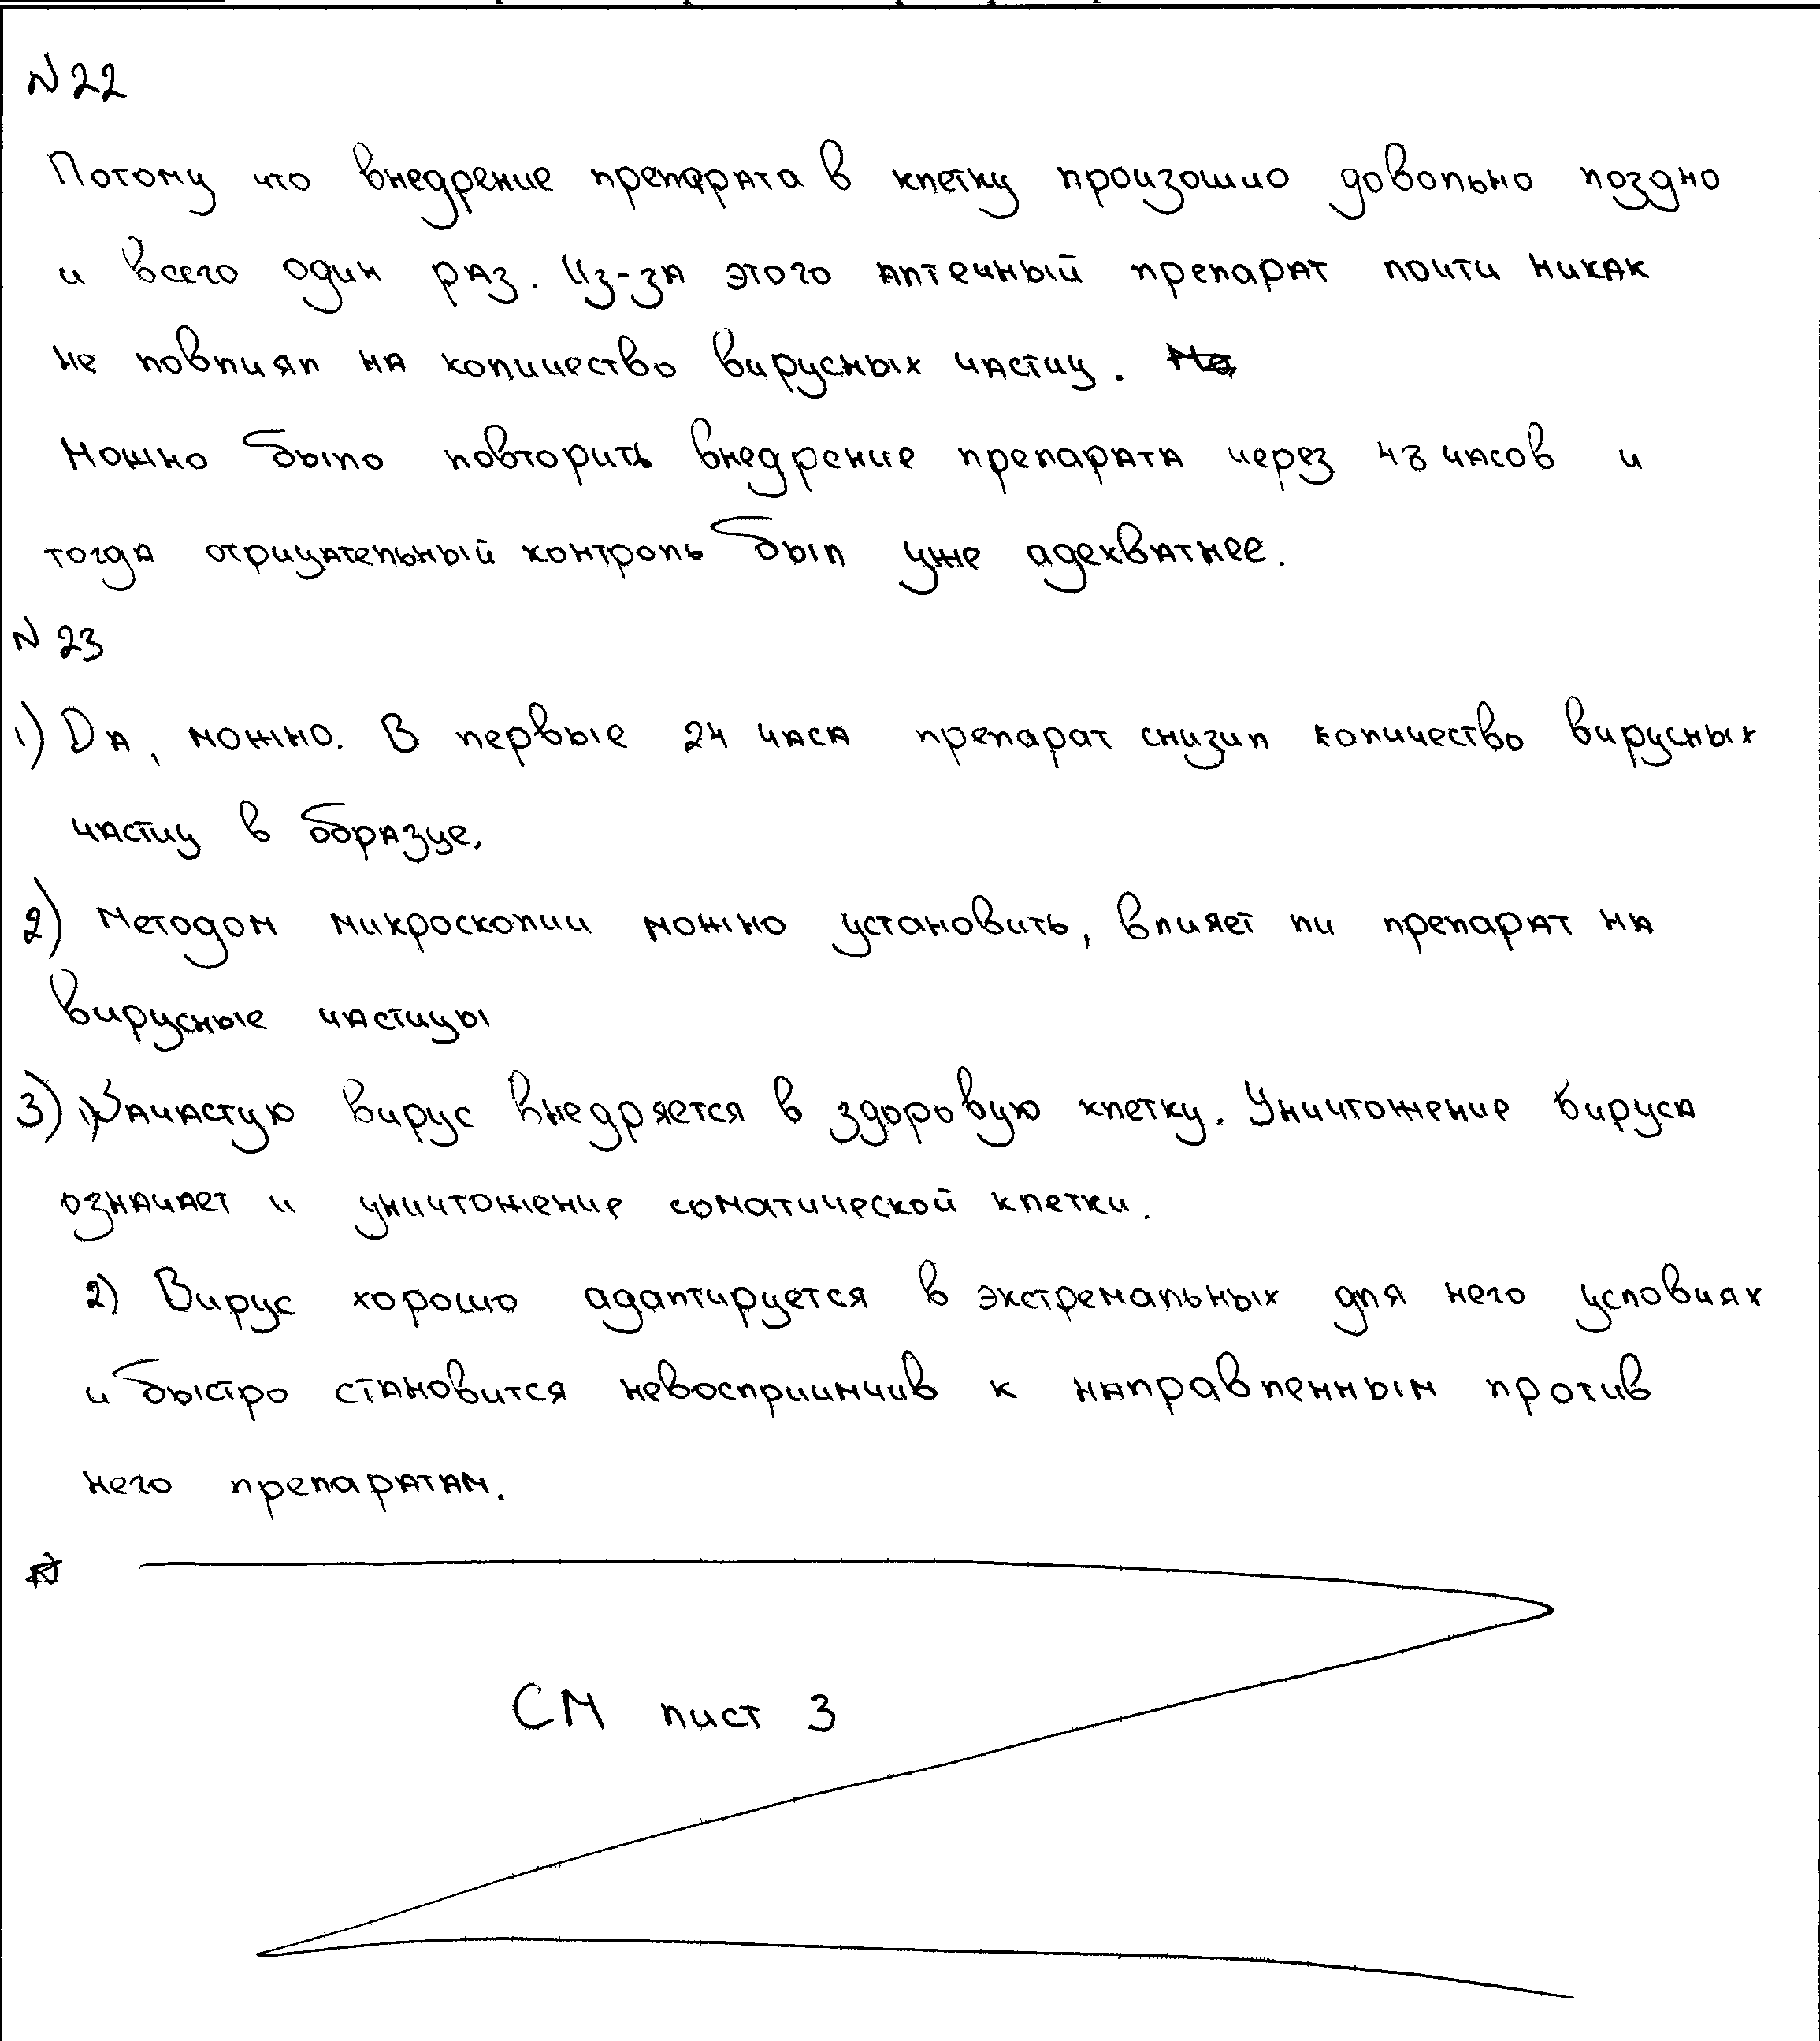 N 22
Потому что внедрение препарата в клетку произошло довольно поздно
и всего один раз. Из-за этого аптечный препарат почти никак
не повлиял на количество вирусных частиц.
Можно было повторить внедрение препарата через 48 часов и
тогда отрицательный контроль был уже адекватнее.
N 23
1) Да, можно. В первые 24 часа препарат снизил количество вирусных
частиц в образце.
2) Методом микроскопии можно установить, влияет ли препарат на
вирусные частицы
3) 1) Зачастую вирус внедряется в здоровую клетку. Уничтожение вируса
означает и уничтожение соматической клетки.
2) Вирус хорошо адаптируется в экстремальных для него условиях
и быстро становится невосприимчив к направленным против
него препаратам.
СМ лист 3